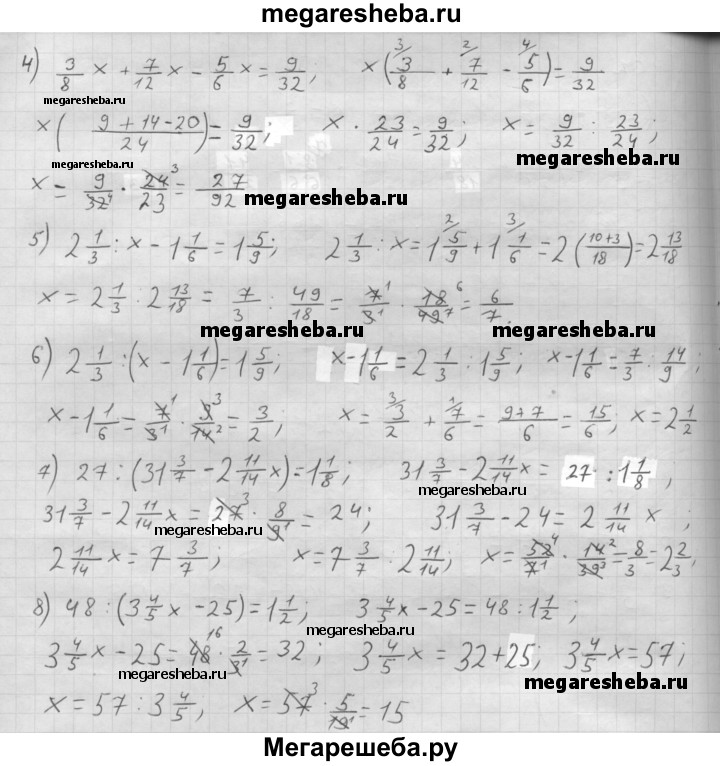 megaresheba.ru
4) 3/8 x + 7/12 x - 5/6 x = 9/32; x(3/ 3/8 + 2/ 7/12 - 4/ 5/6) = 9/32
megaresheba.ru
x( (9+14-20)/24 ) = 9/32; x · 23/24 = 9/32; x = 9/32 : 23/24;
megaresheba.ru megaresheba.ru
x = 9/32⁴ · 24³/23 = 27/92
megaresheba.ru
5) 2 1/3 : x - 1 1/6 = 1 5/9; 2 1/3 : x = 1 2/ 5/9 + 1 3/ 1/6 = 2 ((10+3)/18) = 2 13/18
x = 2 1/3 : 2 13/18 = 7/3 : 49/18 = 7¹/3¹ · 18⁶/49⁷ = 6/7.
megaresheba.ru megaresheba.ru
6) 2 1/3 : (x - 1 1/6) = 1 5/9; x - 1 1/6 = 2 1/3 : 1 5/9; x - 1 1/6 = 7/3 : 14/9;
x - 1 1/6 = 7¹/3¹ · 9³/14² = 3/2; x = 3/ 3/2 + 1/ 7/6 = (9+7)/6 = 15/6; x = 2 1/2
megaresheba.ru
7) 27 : (31 3/7 - 2 11/14 x) = 1 1/8; 31 3/7 - 2 11/14 x = 27 : 1 1/8;
megaresheba.ru
31 3/7 - 2 11/14 x = 27³ · 8/9¹ = 24; 31 3/7 - 24 = 2 11/14 x;
megaresheba.ru megaresheba.ru
2 11/14 x = 7 3/7; x = 7 3/7 : 2 11/14; x = 52⁴/7¹ · 14²/39³ = 8/3 = 2 2/3
8) 48 : (3 4/5 x - 25) = 1 1/2; 3 4/5 x - 25 = 48 : 1 1/2;
megaresheba.ru
3 4/5 x - 25 = 48¹⁶ · 2/3¹ = 32; 3 4/5 x = 32 + 25; 3 4/5 x = 57;
megaresheba.ru megaresheba.ru
x = 57 : 3 4/5; x = 57³ · 5/19¹ = 15
Мегарешеба.ру